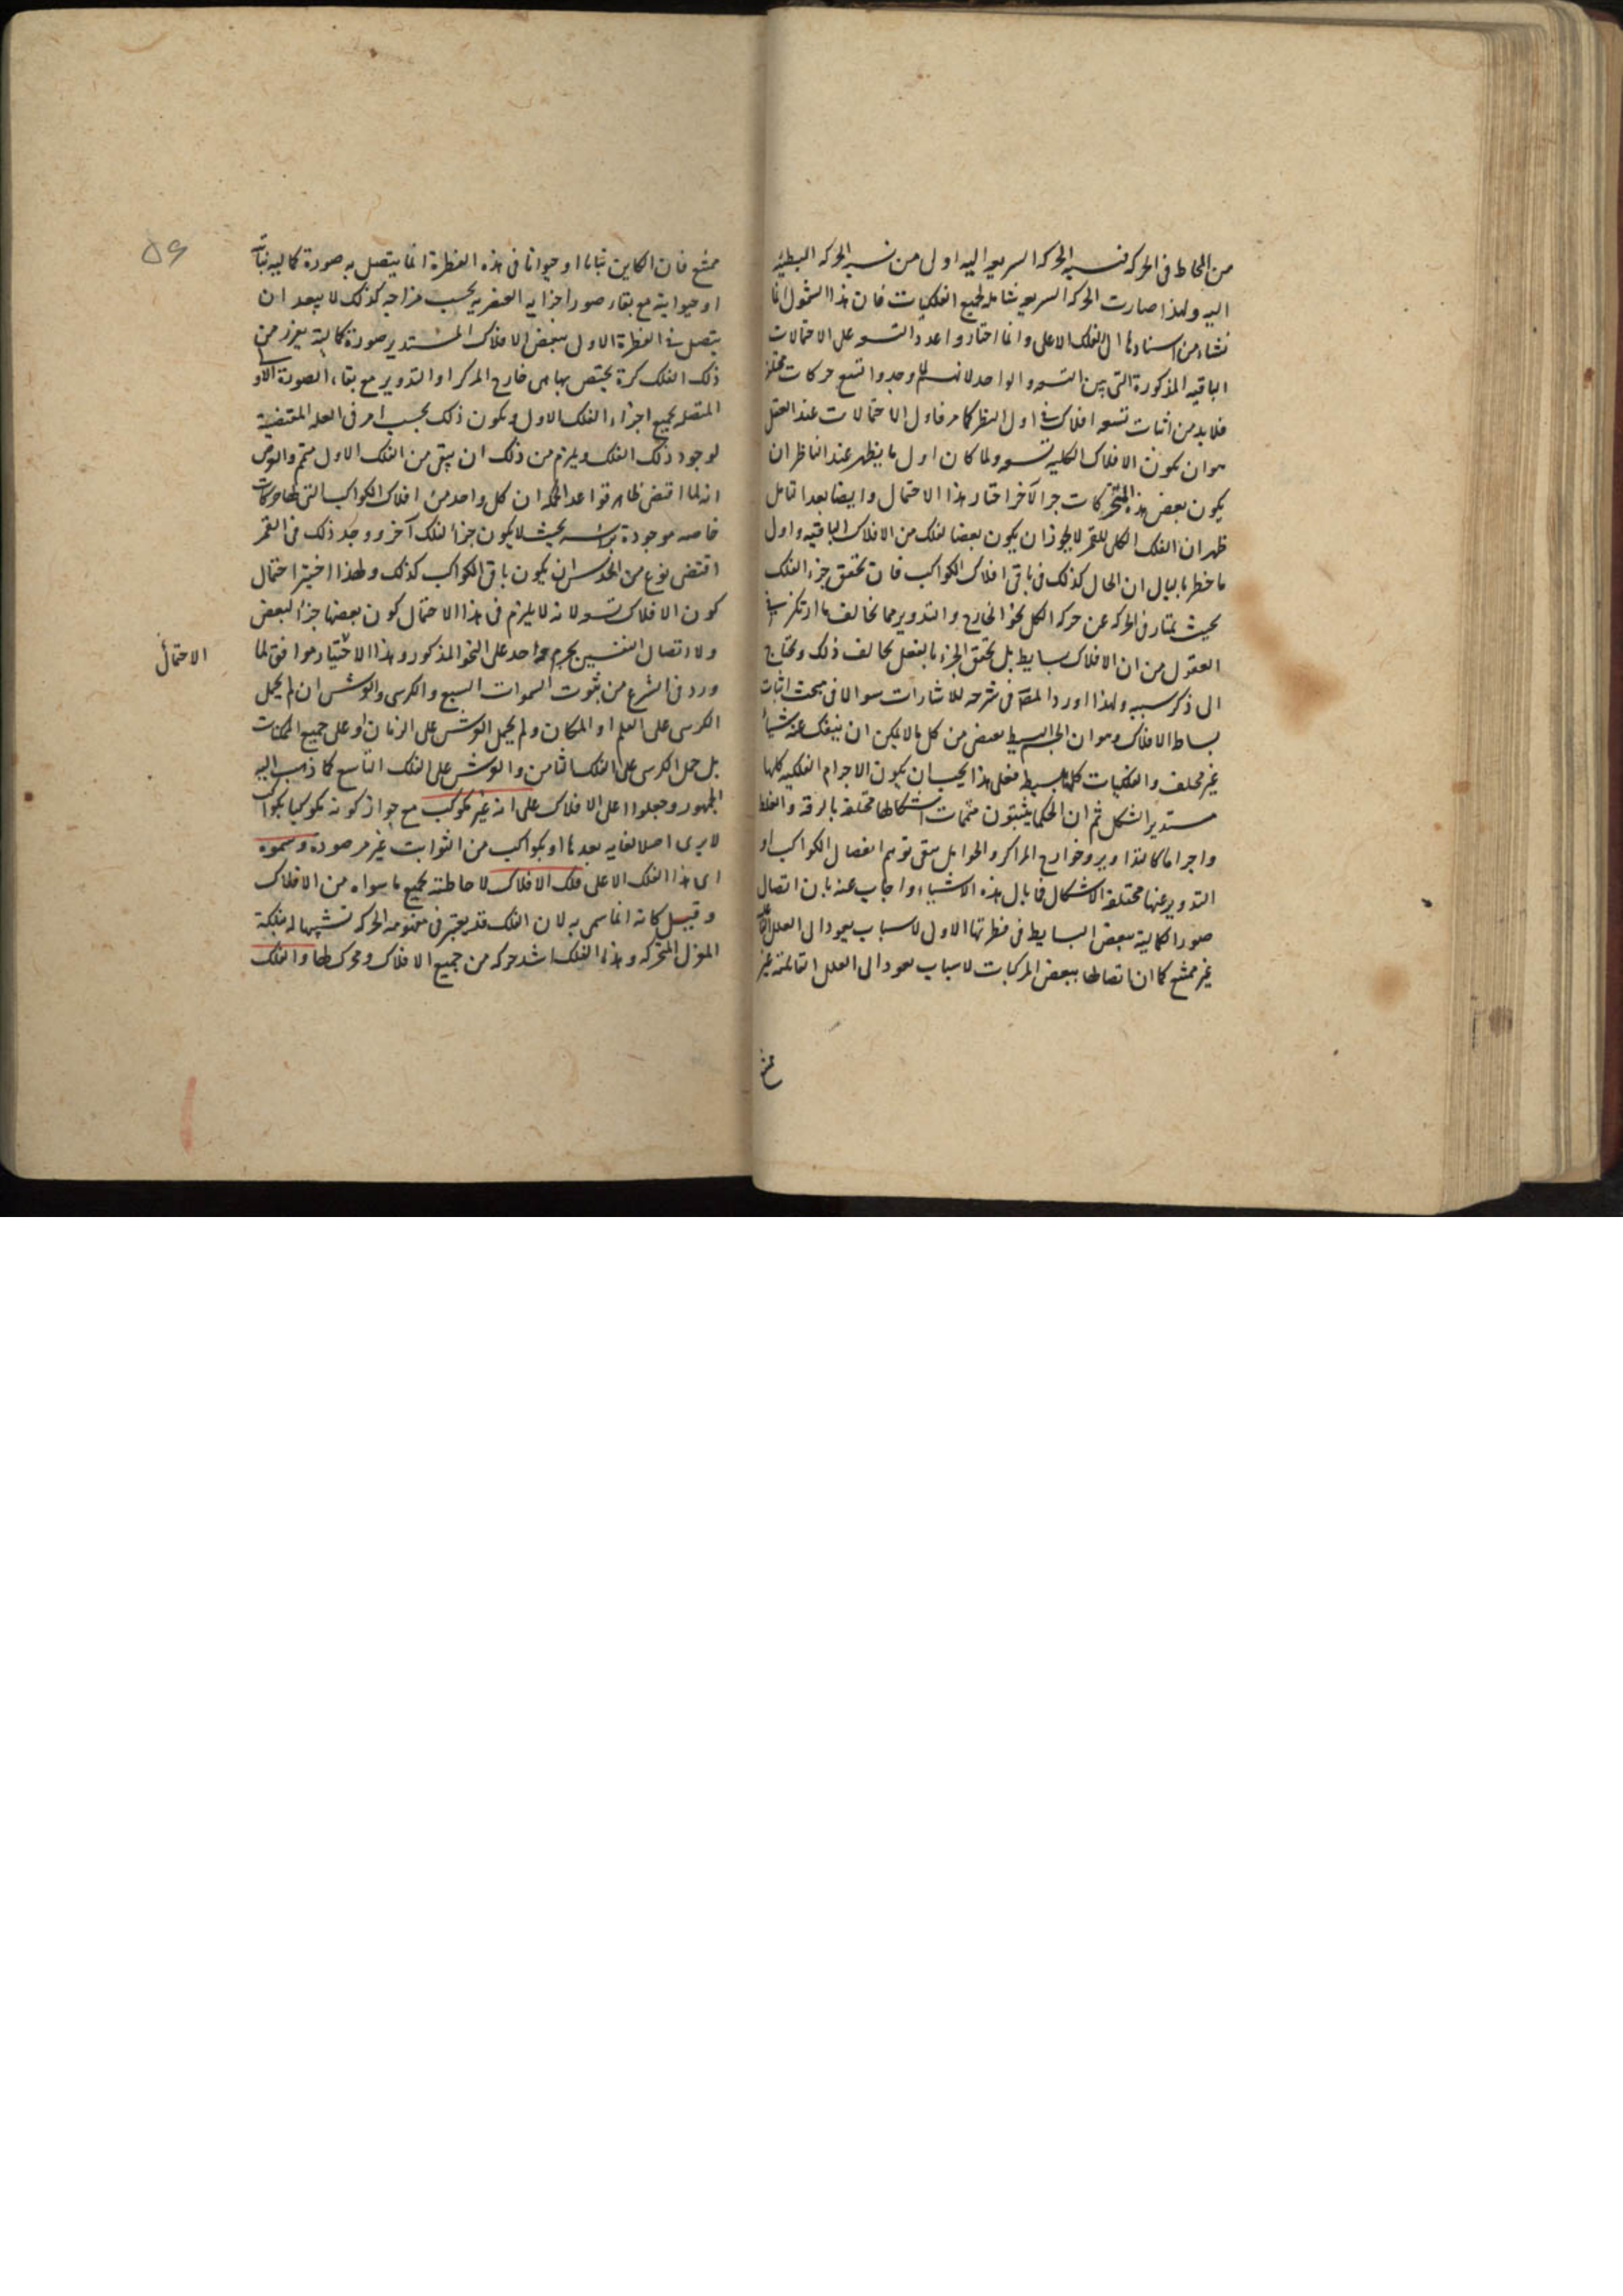 من المحاط فى الحركه فنسبه الحركه السريعه اليه اولى من نسبه الحركه البطيئه
اليه ولهذا صارت الحركه السريعه شامله لجميع الفلكيات فان هذا الشمول انما
نشاء من اسنادها الى الفلك الاعلى وانما اختاروا عدد التسعه على الاحتمالات
الباقيه المذكورة التى بين التسعه والواحد لانهم لما وجدوا تسع حركات مختلفة
فلا بد من اثبات تسعه افلاك فى اول النظر كما مر فاول الاحتمالات عند العقل
هو ان يكون الافلاك الكليه تسعه ولما كان اول ما يظهر عند الناظر ان
يكون بعض هذه المتحركات جزالآخر اختار هذا الاحتمال وايضا بعد التامل
ظهر ان الفلك الكلى للقمر لا يجوز ان يكون بعضا لفلك من الافلاك الباقيه واول
ما خطر بالبال ان الحال كذلك فى باقى افلاك الكواكب فان تحقق جزء الفلك
بحيث يمتاز فى الحركه عن حركه الكل نحو الخارج والتدوير مما يخالف ما ارتكز فى
العقول من ان الافلاك بسايط بل تحقق الجزء بالفعل يخالف ذلك ويحتاج
الى ذكر سببه ولهذا اورد المص فى شرحه للاشارات سوالا فى مبحث اثبات
بساط الافلاك وهو ان الجسم البسيط يمتنع من كل ما لا يمكن ان ينفك عنه شيئا
غير مختلف والفلكيات كلها بسيط فعلى هذا يجب ان يكون الاجرام الفلكيه كلها
مستدير الشكل ثم ان الحكما يثبتون متممات اشكالها مختلفة بالرقة والغلظ
واجراما كالتداوير وخوارج المراكز والحوامل يبقى توهم انفصال الكواكب او
التدوير عنها مختلفة الاشكال فما بال هذه الاشياء واجاب عنه بان اتصال
صور الكمالية ببعض البسايط فى فطرتها الاولى لاسباب يعود الى العلل الفاعلة
غير ممتنع كما ان اتصالها ببعض المركبات لاسباب يعود الى العلل القابلة غير
ممتنع
ممتنع فان الكاين نباتا او حيوانا فى هذه الفطرة انما يتصل به صورة كماليه نباتية
او حيوانية مع بقاء صور اجزايه العنصريه بحسب مزاجه كذلك لا يبعد ان
يتصل فى الفطرة الاولى ببعض الافلاك المستدير صورة كمالية يفرز من
ذلك الفلك كرة يختص بها هى خارج المركز او التدوير مع بقاء الصورة الاولى
المتصله بجميع اجزاء الفلك الاول ويكون ذلك بحسب امر فى العله المقتضية
لوجود ذلك الفلك ويلزم من ذلك ان يبقى من الفلك الاول متمم والغرض
انه لما اقتضى ظاهر قواعد الحكمه ان كل واحد من افلاك الكواكب التى لها حركات
خاصه موجودة براسه بحيث لا يكون جزأ لفلك آخر ووجد ذلك فى القمر
اقتضى نوع من الحدس ان يكون باقى الكواكب كذلك ولهذا اختير احتمال
كون الافلاك تسعه لانه لا يلزم فى هذا الاحتمال كون بعضها جزأ لبعض
ولا اتصال النفسين بجرم واحد على النحو المذكور وهذا الاختيار موافق لما
الاحتمال
ورد فى الشرع من ثبوت السموات السبع والكرسى والعرش ان لم يحمل
الكرسى على العلم او المكان ولم يحمل العرش على الزمان او على جميع الممكنات
بل حمل الكرسى على الفلك الثامن والعرش على الفلك التاسع كما ذهب اليه
الجمهور وجعلوا اعلى الافلاك على انه غير مكوكب مع جواز كونه مكوكبا بكواكب
لا يرى اصلا لغايه بعدها او بكواكب من الثوابت غير مرصودة وسموه
اى هذا الفلك الاعلى فلك الافلاك لاحاطته بجميع ما سواه من الافلاك
وقيل كانه انما سمى به لان الفلك قد يعتبر فى مفهومه الحركه تشبيها له بفلكة
المغزل المتحركه وهذا الفلك اشد حركه من جميع الافلاك ومحرك لها والفلك